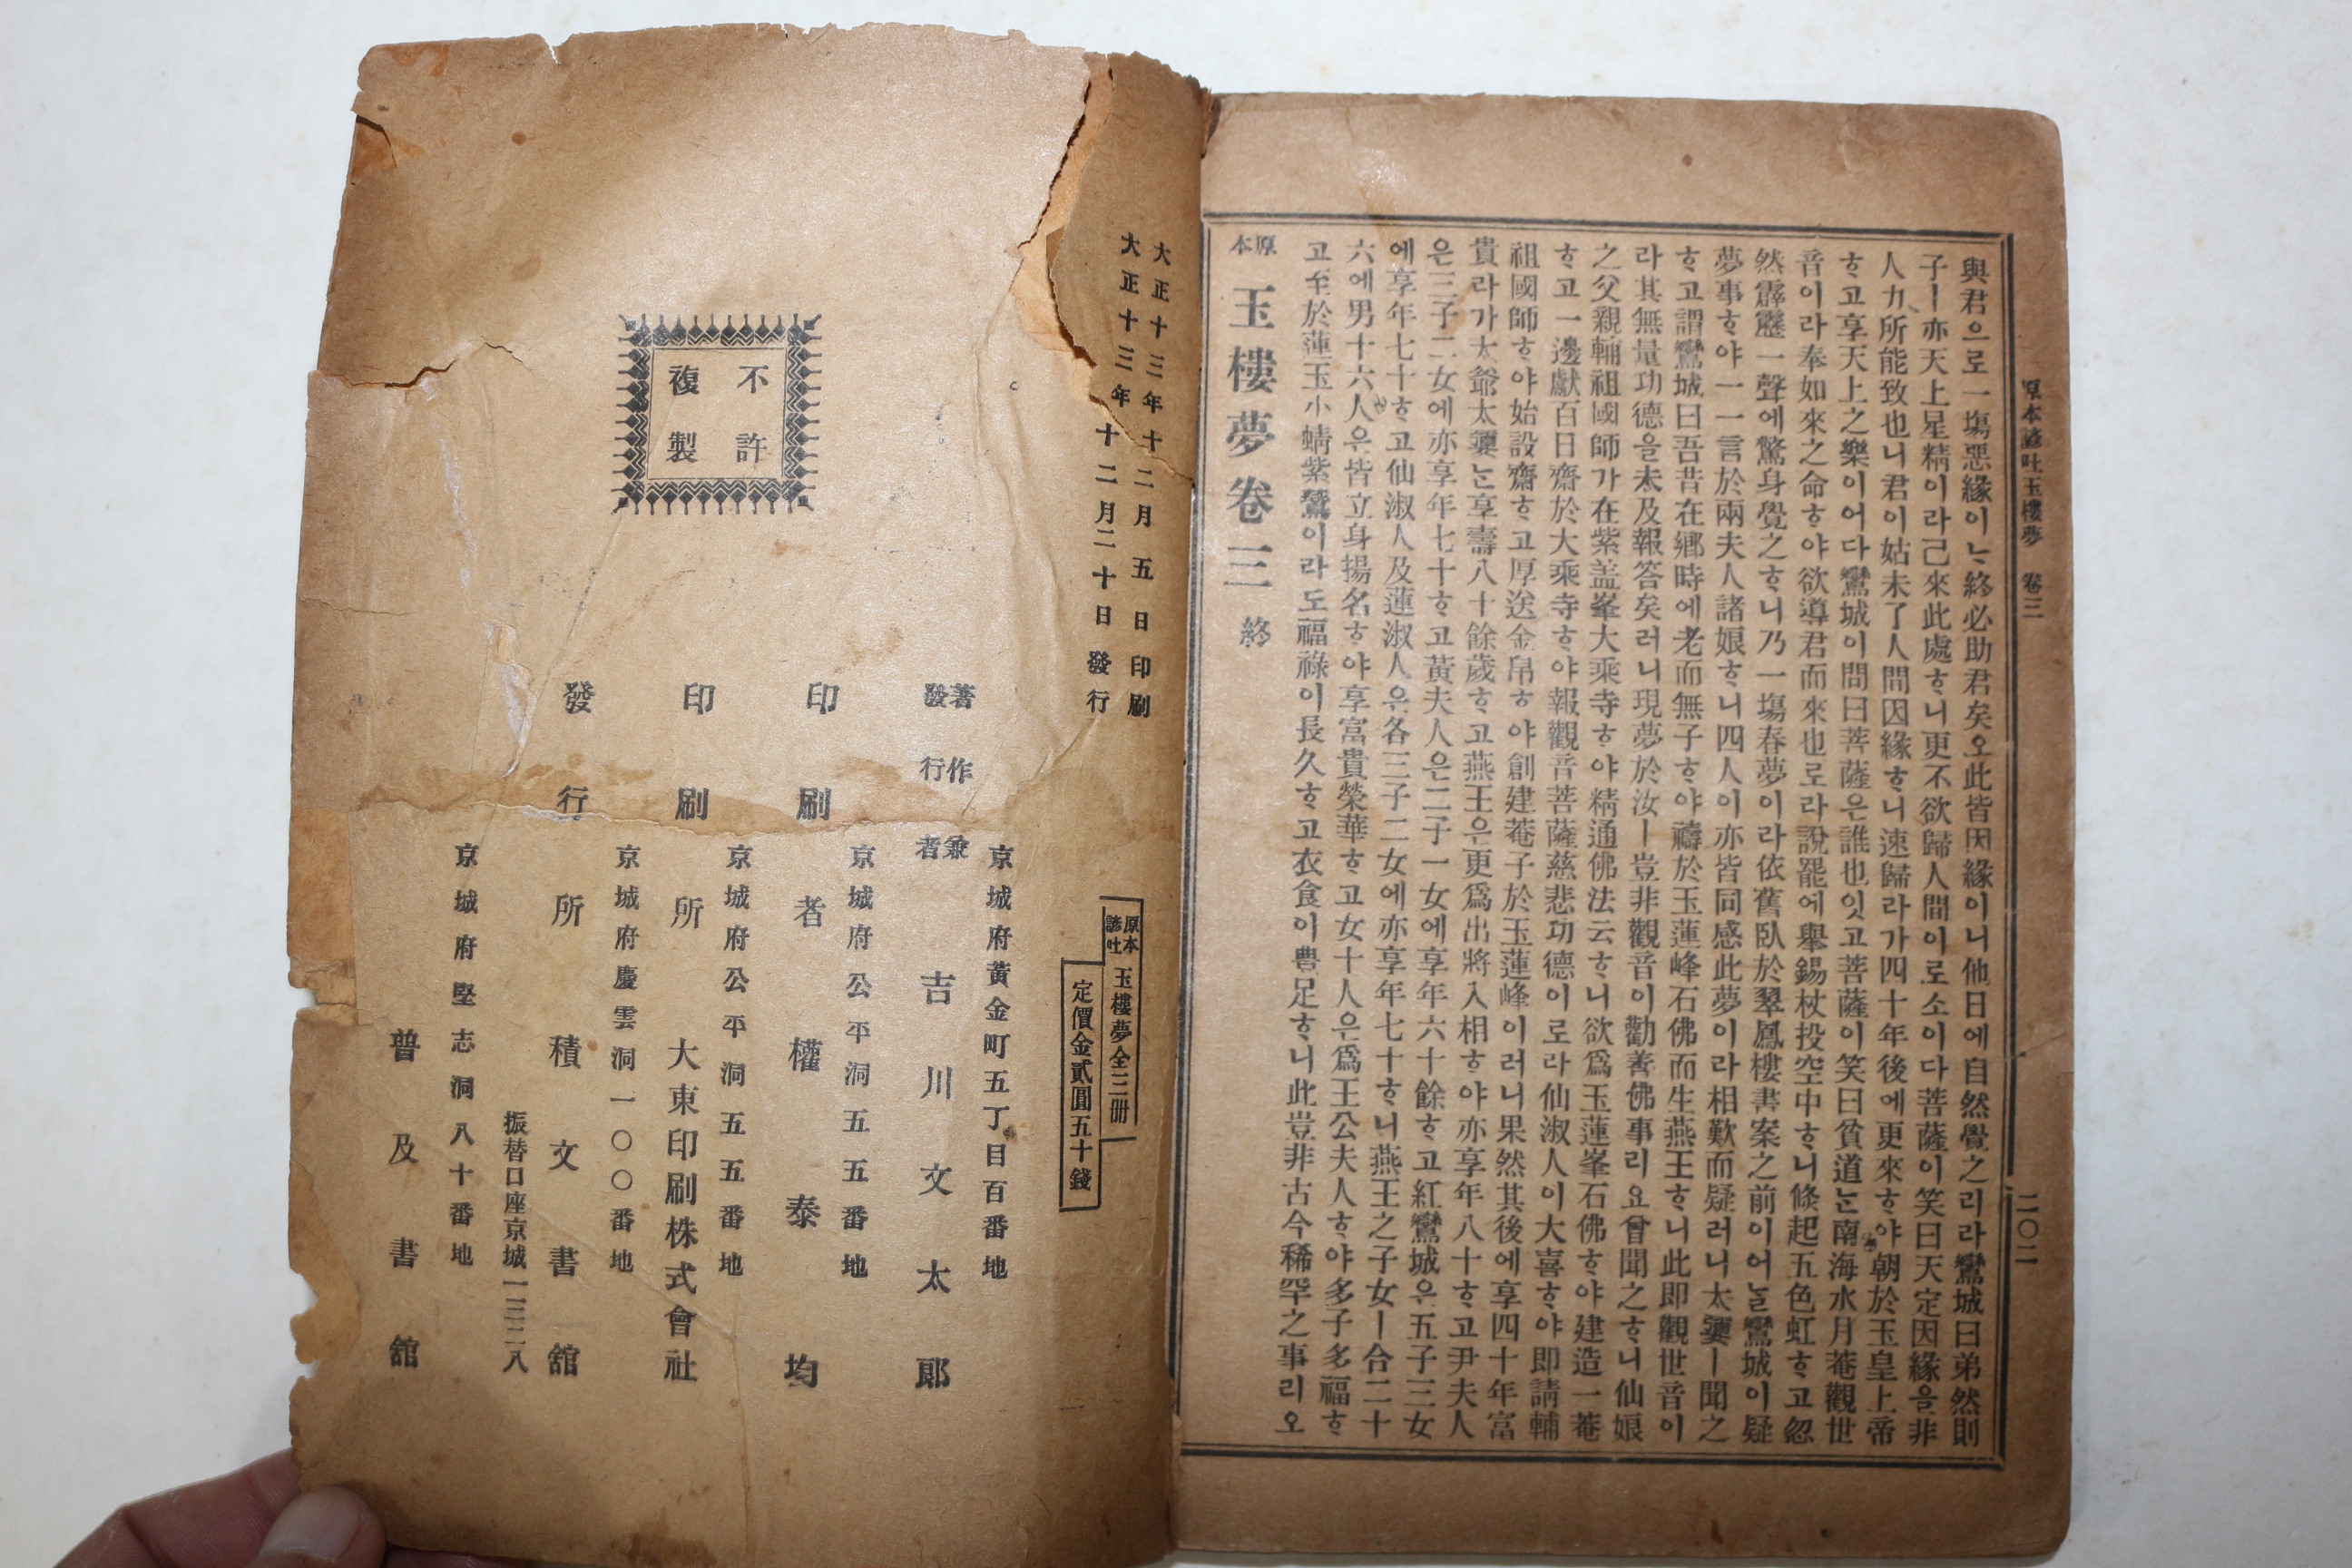 原本諺吐玉樓夢 卷三
二〇二
與君으로一塲惡緣이ᄂᆞ終必助君矣오此皆因緣이니他日에自然覺之리라鸞城曰弟然則
子ㅣ亦天上星精이라己來此處ᄒᆞ니更不欲歸人間이로소이다菩薩이笑曰天定因緣을非
人力所能致也니君이姑未了人間因緣ᄒᆞ니速歸라가四十年後에更來ᄒᆞ야朝於玉皇上帝
ᄒᆞ고享天上之樂이어다鸞城이問曰菩薩은誰也잇고菩薩이笑曰貧道ᄂᆞᆫ南海水月菴觀世
音이라奉如來之命ᄒᆞ야欲導君而來也로라說罷에擧錫杖投空中ᄒᆞ니條起五色虹ᄒᆞ고忽
然霹靂一聲에驚身覺之ᄒᆞ니乃一塲春夢이라依舊臥於翠鳳樓書案之前이어ᄂᆞᆯ鸞城이疑
夢事ᄒᆞ야一一言於兩夫人諸娘ᄒᆞ니四人이亦皆同感此夢이라相歎而疑러니太㜲ㅣ聞之
ᄒᆞ고謂鸞城曰吾昔在鄕時에老而無子ᄒᆞ야禱於玉蓮峰石佛而生燕王ᄒᆞ니此即觀世音이
라其無量功德을未及報答矣러니現夢於汝ㅣ豈非觀音이勸善佛事리요曾聞之ᄒᆞ니仙娘
之父親輔祖國師가在紫盖峯大乘寺ᄒᆞ야精通佛法云ᄒᆞ니欲爲玉蓮峯石佛ᄒᆞ야建造一菴
ᄒᆞ고一邊獻百日齋於大乘寺ᄒᆞ야報觀音菩薩慈悲功德이로라仙淑人이大喜ᄒᆞ야即請輔
祖國師ᄒᆞ야始設齋ᄒᆞ고厚送金帛ᄒᆞ야創建菴子於玉蓮峰이러니果然其後에享四十年富
貴라가太爺太㜲ᄂᆞᆫ享壽八十餘歲ᄒᆞ고燕王은更爲出將入相ᄒᆞ야亦享年八十ᄒᆞ고尹夫人
은三子二女에亦享年七十ᄒᆞ고黃夫人은二子一女에享年六十餘ᄒᆞ고紅鸞城은五子三女
에享年七十ᄒᆞ고仙淑人及蓮淑人은各三子二女에亦享年七十ᄒᆞ니燕王之子女ㅣ合二十
六에男十六人은皆立身揚名ᄒᆞ야享富貴榮華ᄒᆞ고女十人은爲王公夫人ᄒᆞ야多子多福ᄒᆞ
고至於蓮玉小蜻紫鷰이라도福祿이長久ᄒᆞ고衣食이豊足ᄒᆞ니此豈非古今稀罕之事리오
原本 玉樓夢卷三 終
大正十三年十二月五日印刷
大正十三年十二月二十日發行
原本諺吐 玉樓夢全三冊
定價金貳圓五十錢
京城府黃金町五丁目百番地
著作兼發行者 吉川文太郞
京城府公平洞五五番地
印刷者 權泰均
京城府公平洞五五番地
印刷所 大東印刷株式會社
京城府慶雲洞一〇〇番地
發行所 積文書舘
振替口座京城一三二八
京城府堅志洞八十番地
普及書舘
不許
複製